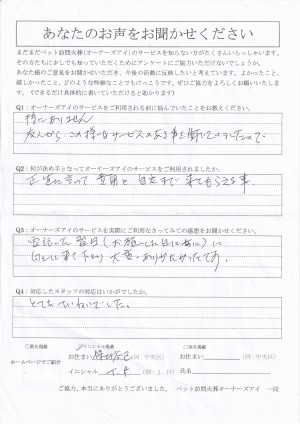 あなたのお声をお聞かせください
まだまだペット訪問火葬(オーナーズアイ)のサービスを知らない方がたくさんいらっしゃいます。
その方たちに少しでも知っていただくためにアンケートにご協力いただけないでしょうか。
あなた様のご意見をお聞かせいただき、今後の活動に反映したいと考えています。よかったこと、
嬉しかったこと、どのような些細なことでもけっこうです。ぜひご協力をよろしくお願いいたしま
す。(できるだけ具体的に書いていただけると助かります)
Q1:オーナーズアイのサービスをご利用される前に悩んでいたことをお教えください。
特にありません
友人から この様なサービスのある事を聞いていましたので
Q2:何が決め手となってオーナーズアイのサービスをご利用されましたか。
正直に言って 費用と 自宅まで 来てもらえる事
Q3:オーナーズアイのサービスを実際にご利用なさってみての感想をお聞かせください。
電話した翌日(お願いした日
に来て下さり 大変ありがたかったです。
Q4:対応したスタッフの対応はいかがでしたか。
とてもていねいでした。
ホームページでご紹介
□匿名掲載
イニシャル掲載
□実名掲載
お住まい
(例:中央区)
お住まい
(例:中央区)
イニシャル T.F (例:S.H)
氏名
ご協力、本当にありがとうございました。 ペット訪問火葬オーナーズアイ 一同